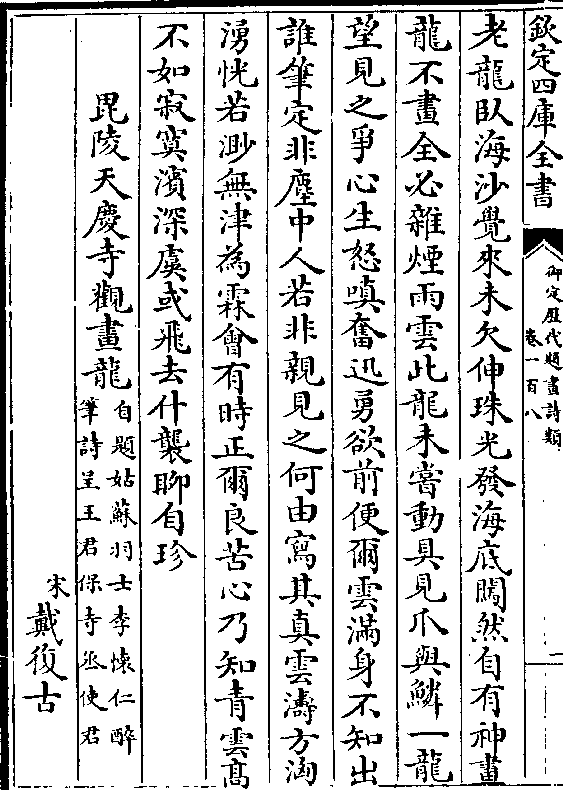 欽定四庫全書
御定歷代題畫詩類
卷一百八
一
老龍臥海沙覺來未欠伸珠光發海底闖然自有神畫
龍不畫全必雜煙雨雲此龍未嘗動具見爪與鱗一龍
望見之爭心生怒嗔奮迅勇欲前便爾雲滿身不知出
誰筆定非塵中人若非親見之何由寫其真雲濤方洶
湧恍若渺無津為霖會有時正爾良苦心乃知青雲髙
不如寂寞濱深虞或飛去什襲聊自珍
毘陵天慶寺觀畫龍
自題姑蘇羽士李懷仁醉
筆詩呈王君保寺丞使君
宋戴復古